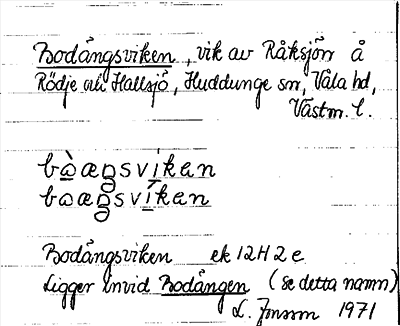 Bodångsviken, vik av Råksjön å
Rödje och Hallsjö, Huddunge sn, Våla hd,
Västm. l.
bòaŋsvíkan
boaŋsvikan
Bodångsviken ek 12H 2e
Ligger invid Bodången (se detta namn)
L. Jonsson 1971